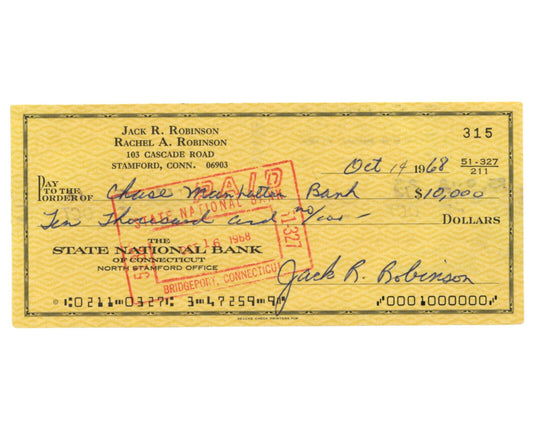 JACK R. ROBINSON
RACHEL A. ROBINSON
103 CASCADE ROAD
STAMFORD, CONN. 06903
315
Oct 14 1968 51-327
211
PAY TO THE ORDER OF Chase Manhattan Bank $10,000
Ten Thousand and no/100 — DOLLARS
PAID
STATE NATIONAL BANK
16 1968
51-327
BRIDGEPORT, CONNECTICUT
THE
STATE NATIONAL BANK
OF CONNECTICUT
NORTH STAMFORD OFFICE
Jack R. Robinson
0211 0327 3 47259 9 0001000000